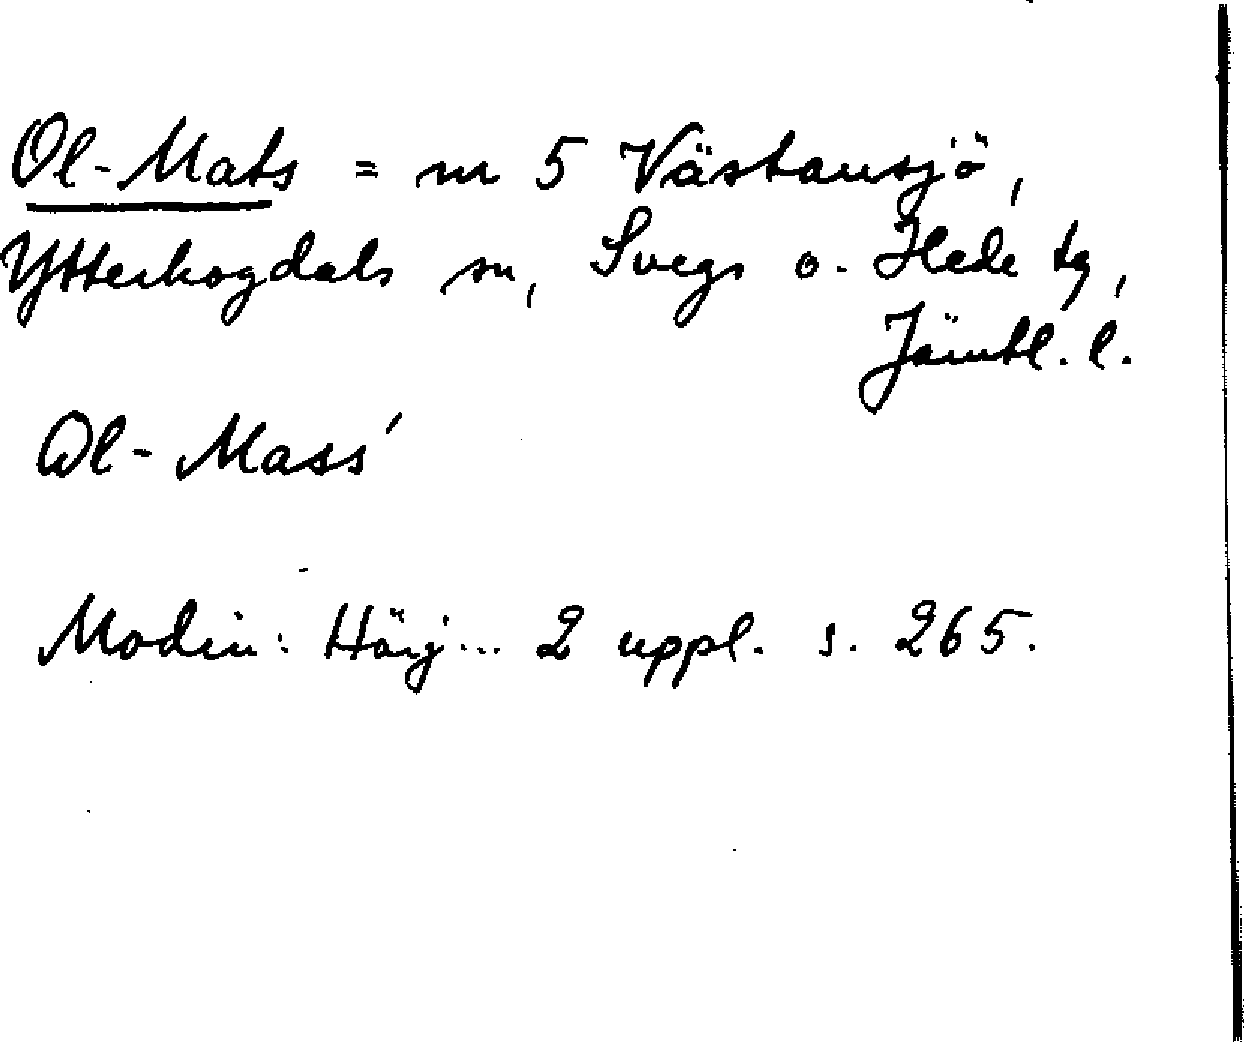 Ol-Mats = nr 5 Västansjö,
Ytterhogdals sn, Svegs o. Hede tg,
Jämtl. l.
Ol-Mass'
Modin: Härj... 2 uppl. s. 265.